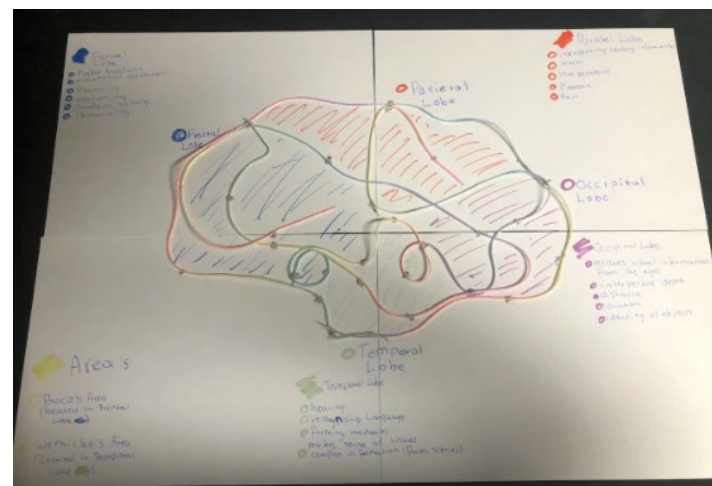 Frontal
Lobe
higher functions
emotional
planning
reasoning
problem solving
Personality
Parietal Lobe
touch
temperature
Pressure
Pain
Parietal
Lobe
Frontal
Lobe
Occipital
Lobe
Occipital Lobe
recieves visual information
from the eyes
depth
distance
location
identity of objects
Temporal
Lobe
Temporal Lobe
hearing
recognising Language
forming memories
makes sense of visual
complex information (faces,
Area's
Broca's Area
(located in Frontal
Lobe
Wernicke's Area
(located in Temporal
Lobe